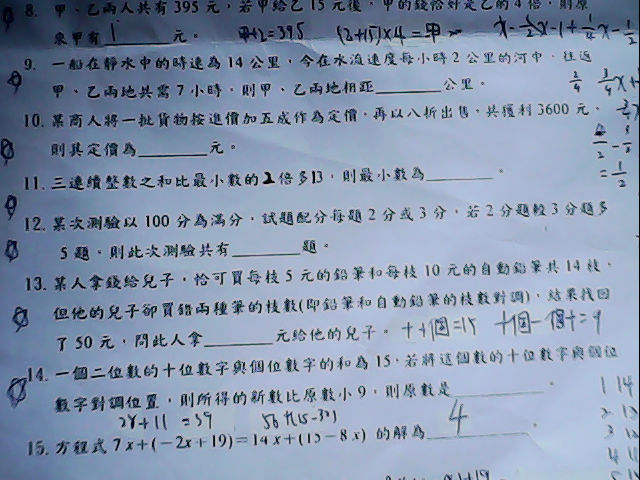 8. 甲、乙兩人共有 395 元，若甲給乙 15 元後，甲的錢恰好是乙的 4 倍，則原
來甲有 元。 甲+2=395 (2+15)×4=甲
9. 一船在靜水中的時速為 14 公里，今在水流速度每小時 2 公里的河中，往返
甲、乙兩地共需 7 小時，則甲、乙兩地相距________公里。
10. 某商人將一批貨物按進價加五成作為定價，再以八折出售，共獲利 3600 元，
則其定價為________元。
11. 三連續整數之和比最小數的 2 倍多 13，則最小數為________。
12. 某次測驗以 100 分為滿分，試題配分每題 2 分或 3 分，若 2 分題較 3 分題多
5 題，則此次測驗共有________題。
13. 某人拿錢給兒子，恰可買每枝 5 元的鉛筆和每枝 10 元的自動鉛筆共 14 枝，
但他的兒子卻買錯兩種筆的枝數(即鉛筆和自動鉛筆的枝數對調)，結果找回
了 50 元，問此人拿________元給他的兒子。 十+個=15 十個-個十=9
14. 一個二位數的十位數字與個位數字的和為 15，若將這個數的十位數字與個位
數字對調位置，則所得的新數比原數小 9，則原數是__________。
4
15. 方程式 7x+(-2x+19)=14x+(15-8x) 的解為__________。